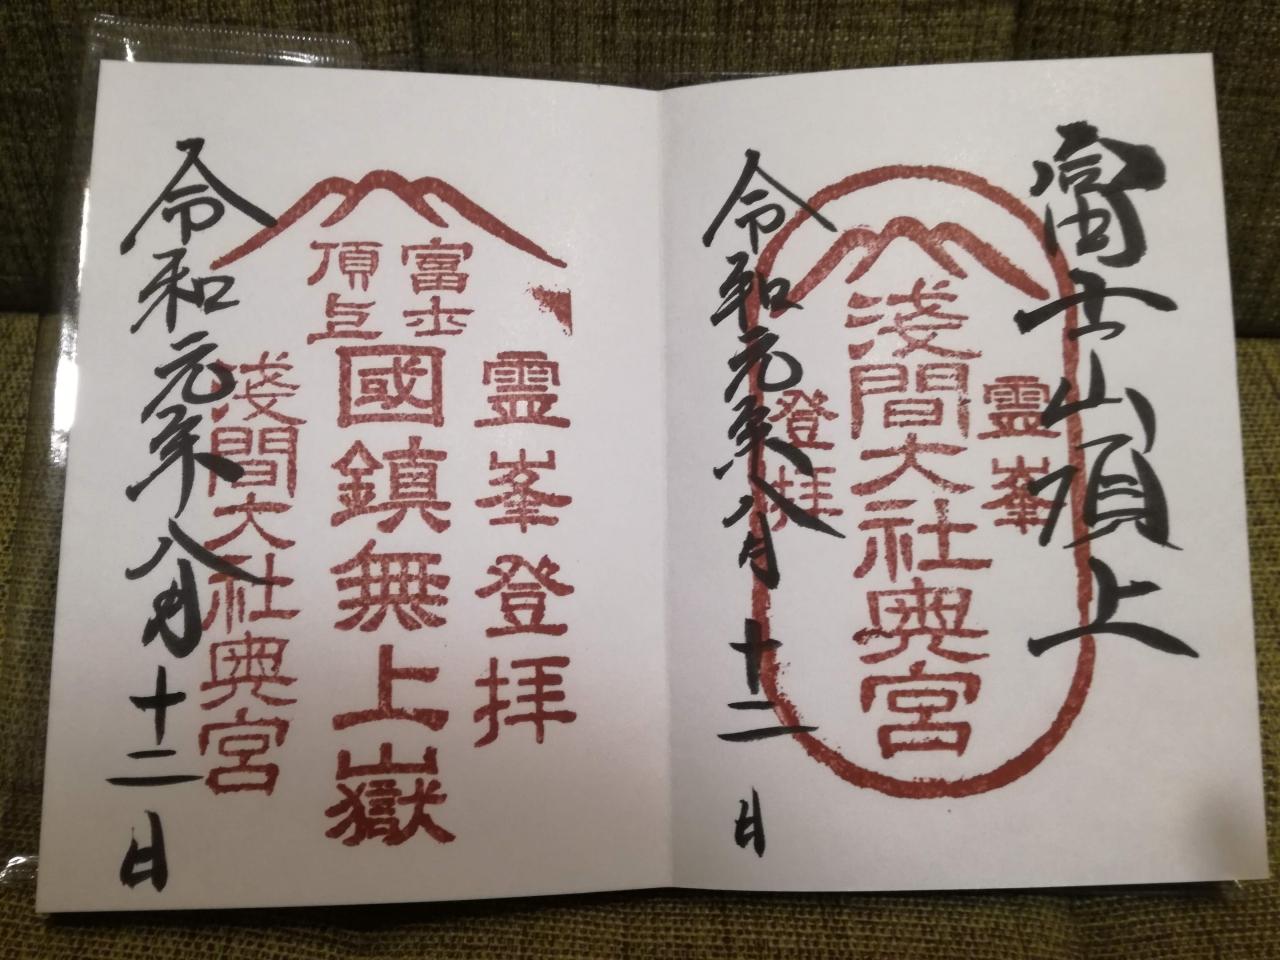 富士山頂上
霊峯登拝
淺間大社奥宮
令和元年八月十二日
霊峯登拝
富士
頂上
國鎮無上嶽
淺間大社奥宮
令和元年八月十二日